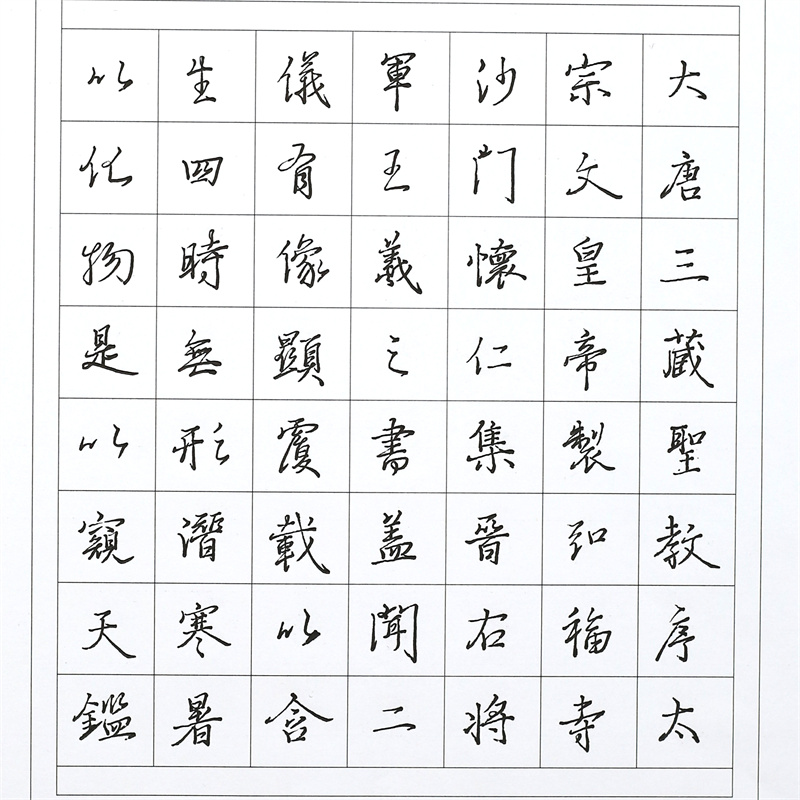 大唐三蔵聖教序太
宗文皇帝製弘福寺
沙門懷仁集晉右將
軍王羲之書蓋聞二
儀有像顯覆載以含
生四時無形潛寒暑
以化物是以窺天鑑